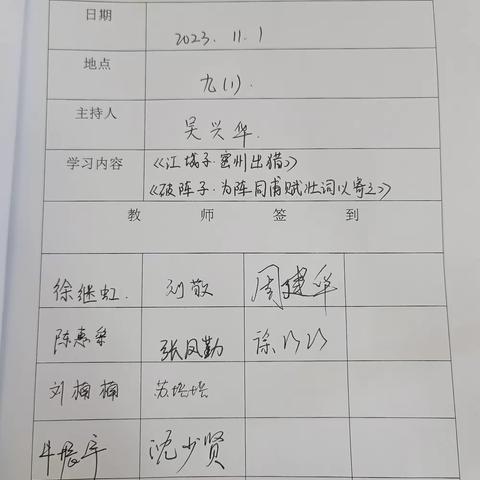 日期 2023. 11. 1
地点 九(1).
主持人 吴兴华.
学习内容 《江城子·密州出猎》
《破阵子·为陈同甫赋壮词以寄之》
教 师 签 到
徐继虹. 刘敬 周建华
陈惠 张凤勤 徐
刘楠楠 苏培培
牛 沈少贤